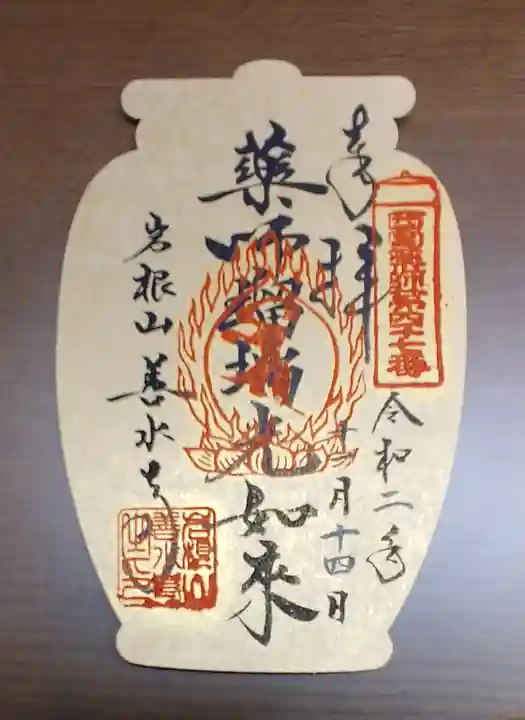 奉拝
西国薬師第四十七番
令和二年
月十四日
薬師瑠璃光如来
岩根山善水寺